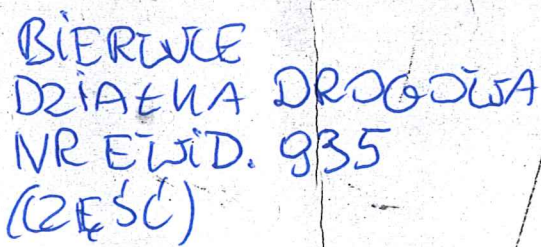 BIERWCE
DZIAŁKA DROGOWA
NR EWID. 935
(CZĘŚĆ)